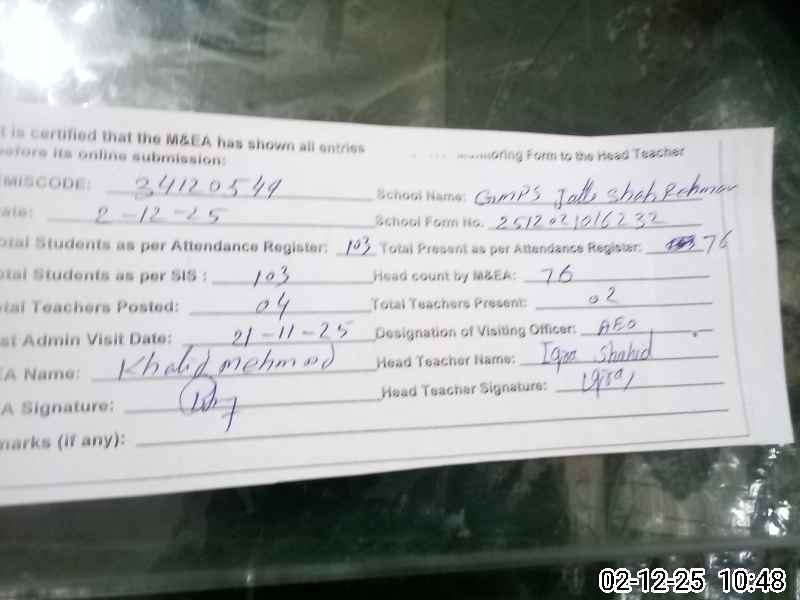 t is certified that the M&EA has shown all entries onitoring Form to the Head Teacher
efore its online submission:
MISCODE: 34120544 School Name: GMPS Jatto Shah Rehman
ate: 2-12-25 School Form No. 2512021016232
otal Students as per Attendance Register: 103 Total Present as per Attendance Register: 76
otal Students as per SIS : 103 Head count by M&EA: 76
otal Teachers Posted: 04 Total Teachers Present: 02
st Admin Visit Date: 21-11-25 Designation of Visiting Officer: AEO
EA Name: Khalid mehmood Head Teacher Name: Iqra Shahid
A Signature: Head Teacher Signature: Iqra
marks (if any):
02-12-25 10:48